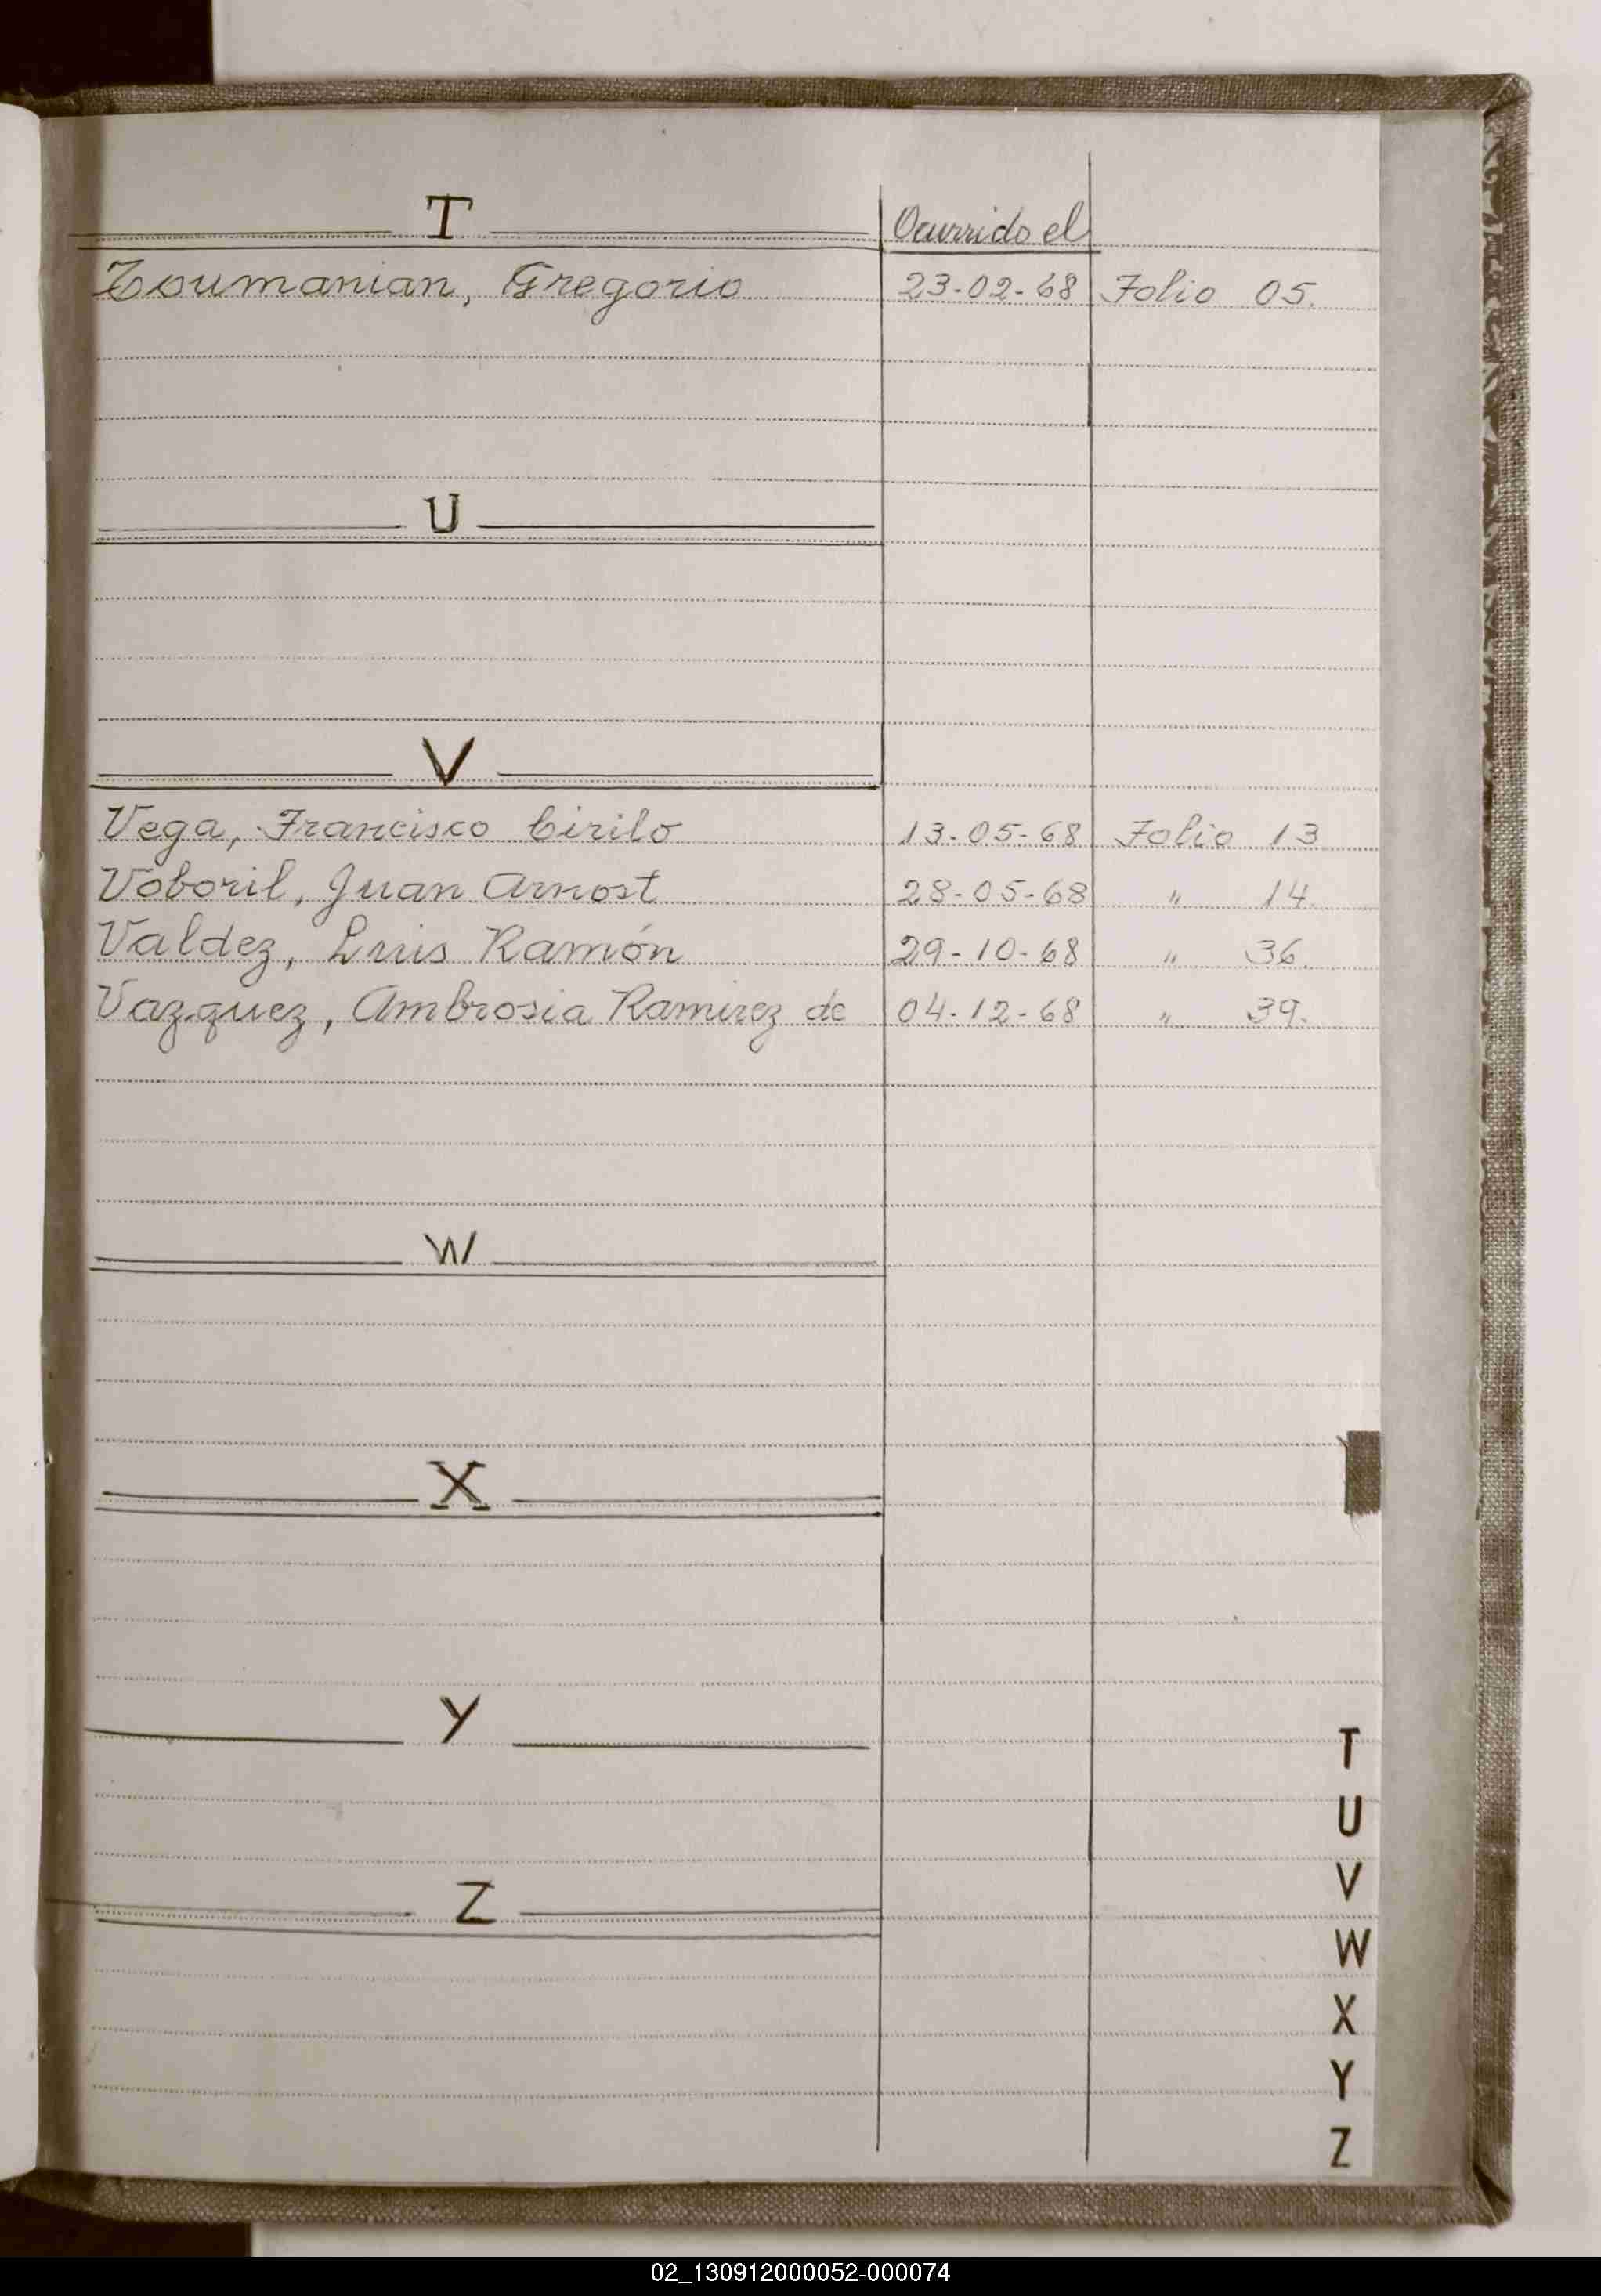 T Ocurrido el
Toumanian, Gregorio 23-02-68 Folio 05.
U
V
Vega, Francisco Cirilo 13-05-68 Folio 13
Voboril, Juan Arnost 28-05-68 " 14.
Valdez, Luis Ramón 29-10-68 " 36.
Vazquez, Ambrosia Ramirez de 04-12-68 " 39.
W
X
Y
Z
T
U
V
W
X
Y
Z
02_130912000052-000074